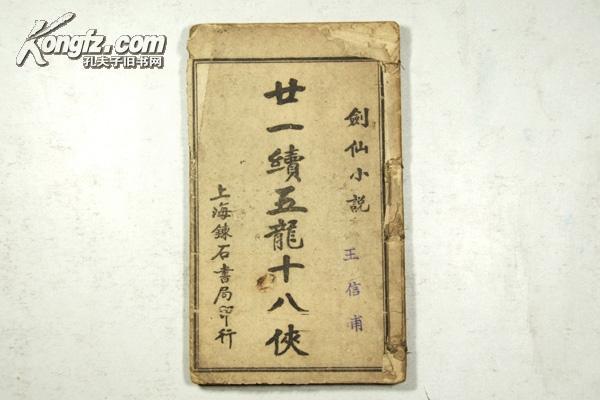 Kongfz.com
孔夫子旧书网
劍仙小説
王信甫
廿一續五龍十八俠
上海錬石書局印行